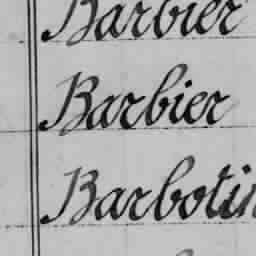 Barbier
Barbier
Barbotin